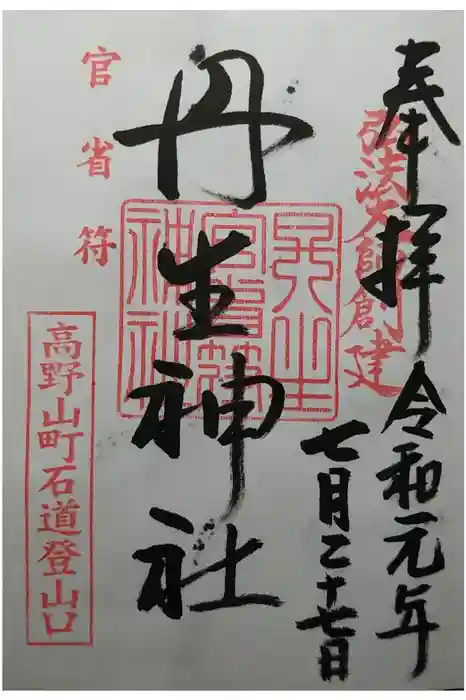 奉拝
弘法大師創建
令和元年
七月二十七日
丹生神社
丹生官省符神社
官省符
高野山町石道登山口